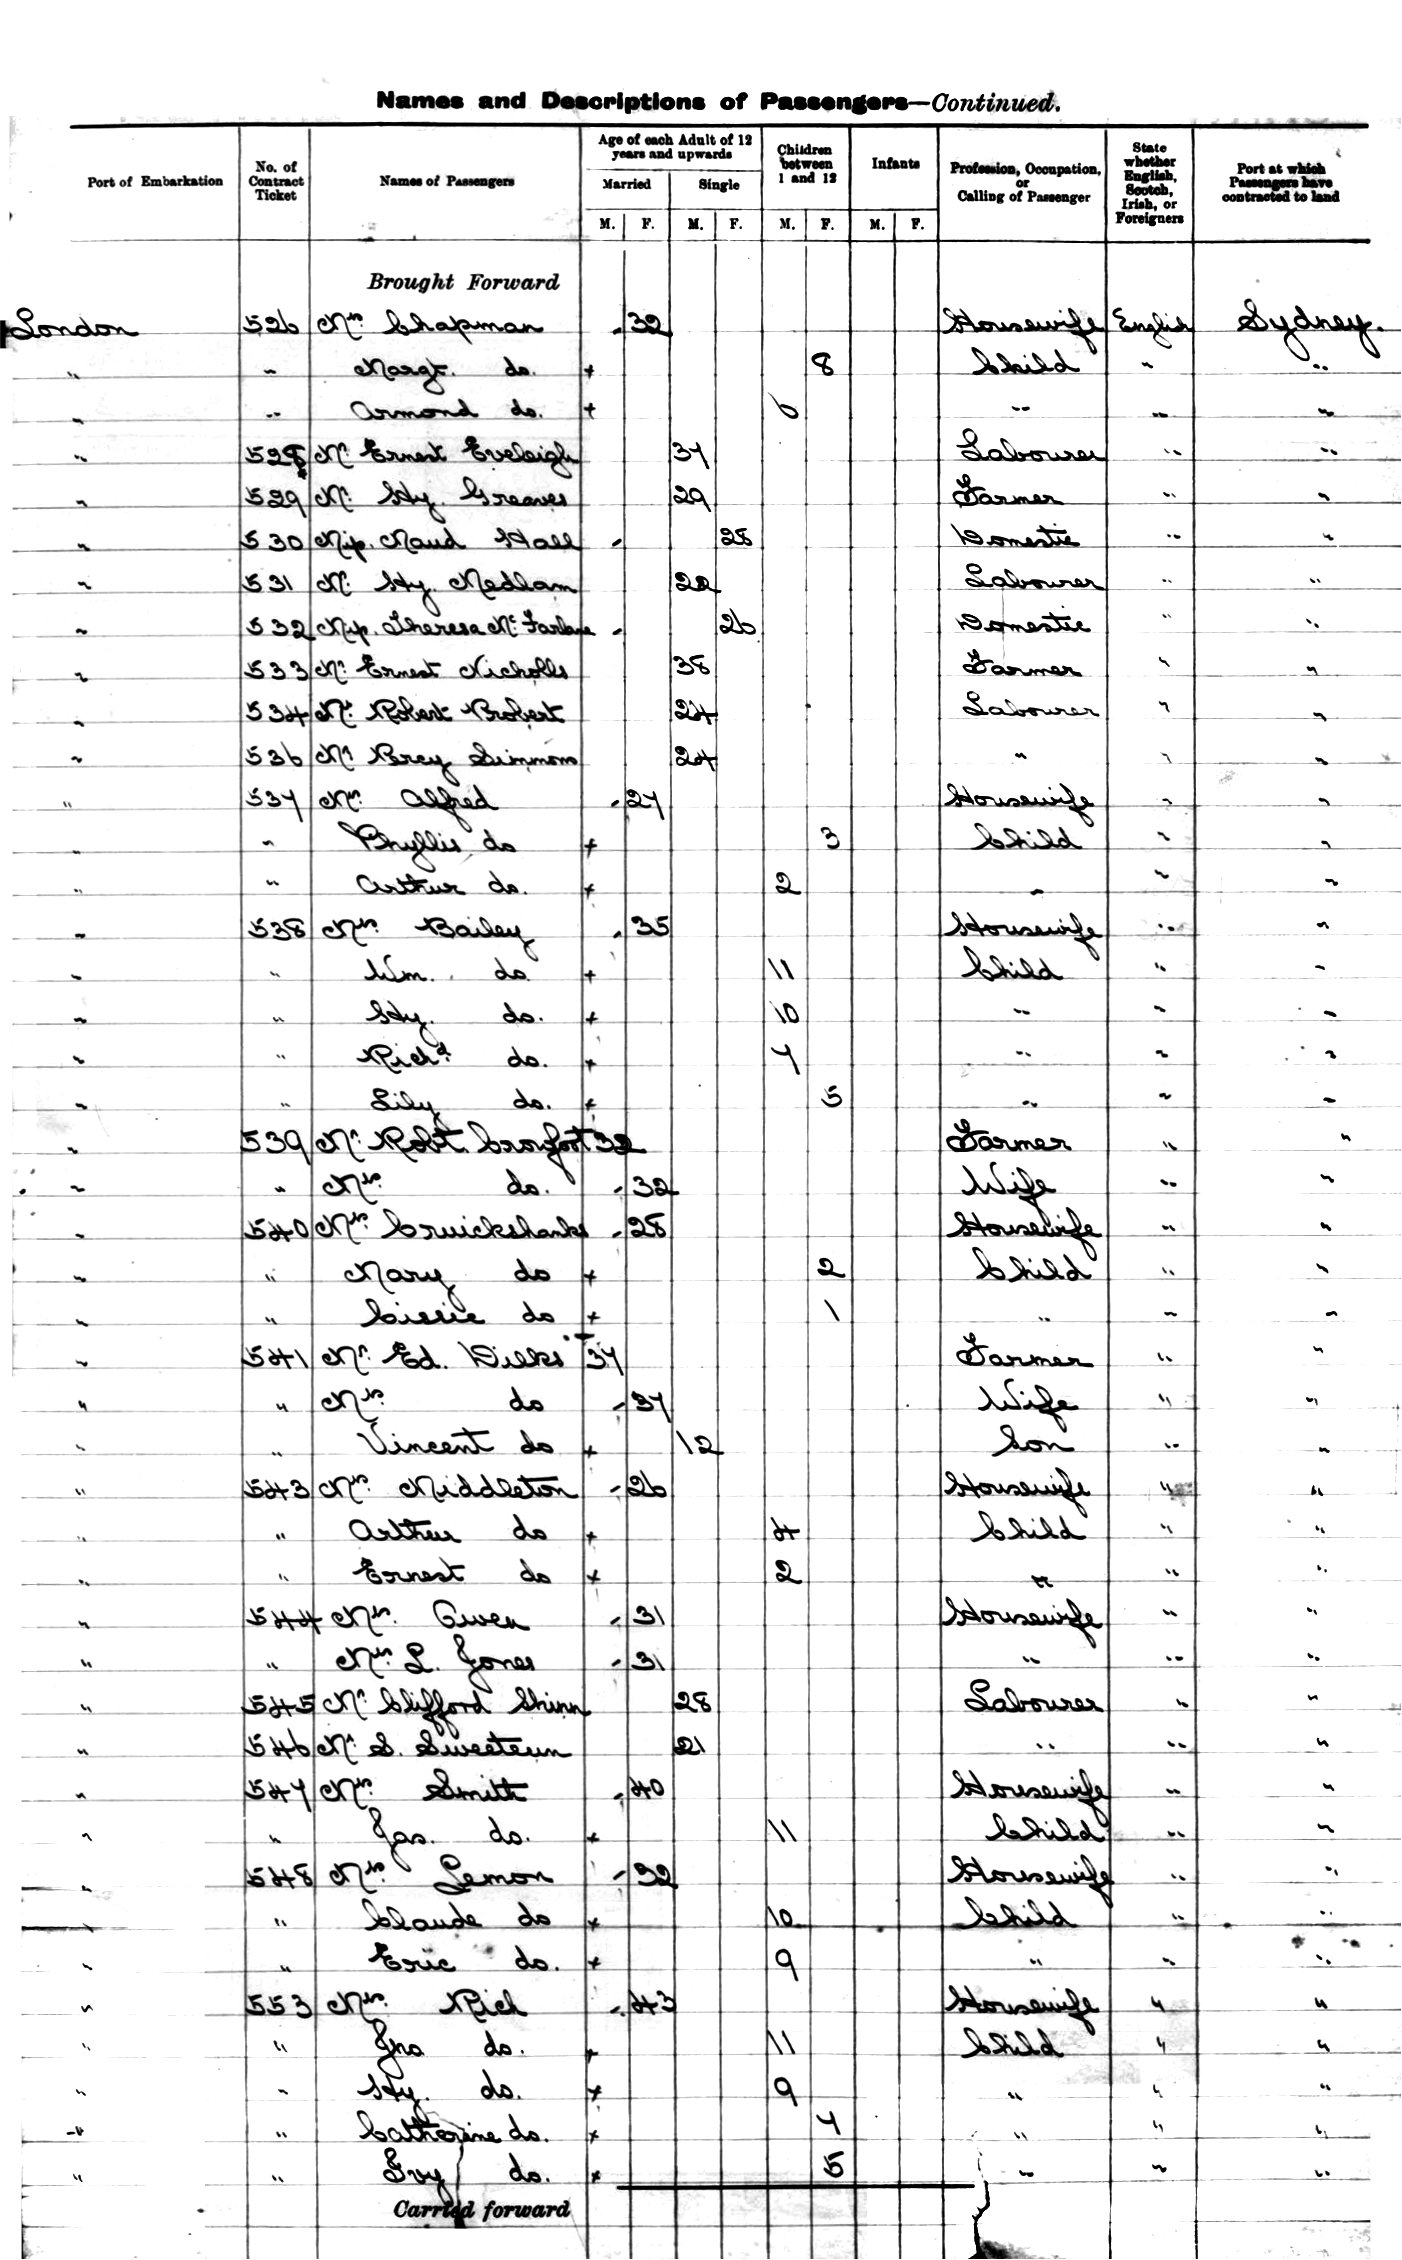 Names and Descriptions of Passengers—Continued.
Port of Embarkation No. of Contract Ticket Names of Passengers Age of each Adult of 12 years and upwards Married Single Children between 1 and 12 Infants Profession, Occupation, or Calling of Passenger State whether English, Scotch, Irish, or Foreigners Port at which Passengers have contracted to land
M. F. M. F. M. F. M. F.
Brought Forward
London 526 Mrs. Chapman - 32 Housewife English Sydney.
" " Margt. do. + 8 Child " "
" " Armond do. + 6 " " "
" 528 Mr. Ernest Eveleigh 37 Labourer " "
" 529 Mr. Hy. Greaves 29 Farmer " "
" 530 Miss. Maud Hall - 28 Domestic " "
" 531 Mr. Hy. Medlam 22 Labourer " "
" 532 Miss. Theresa McFarlane - 26 Domestic " "
" 533 Mr. Ernest Nicholls 38 Farmer " "
" 534 Mr. Robert Probert 24 Labourer " "
" 536 Mr. Percy Simmons 24 " " "
" 537 Mrs. Alfred - 27 Housewife " "
" " Phyllis do + 3 Child " "
" " Arthur do. + 2 " " "
" 538 Mrs. Bailey - 35 Housewife " "
" " Wm. do + 11 Child " "
" " Hy. do. + 10 " " "
" " Richd. do. + 7 " " "
" " Lily do. + 5 " " "
" 539 Mr. Robt. Cronfoot 32 Farmer " "
" " Mrs. do. - 32 Wife " "
" 540 Mrs. Cruickshanks - 28 Housewife " "
" " Mary do + 2 Child " "
" " Cissie do + 1 " " "
" 541 Mr. Ed. Dilks 37 Farmer " "
" " Mrs. do - 37 Wife " "
" " Vincent do + 12 Son " "
" 543 Mrs. Middleton - 26 Housewife " "
" " Arthur do + 4 Child " "
" " Ernest do + 2 " " "
" 544 Mrs. Owen - 31 Housewife " "
" " Mrs. L. Jones - 31 " " "
" 545 Mr. Clifford Shinn 28 Labourer " "
" 546 Mr. S. Sweeteun 21 " " "
" 547 Mrs. Smith - 40 Housewife " "
" " Jas. do. + 11 Child " "
" 548 Mrs. Lemon - 32 Housewife " "
" " Claude do + 10 Child " "
" " Eric do. + 9 " " "
" 553 Mrs. Rich - 43 Housewife " "
" " Jno do. + 11 Child " "
" " Hy. do. + 9 " " "
" " Catherine do. + 7 " " "
" " Ivy do. + 5 " " "
Carried forward